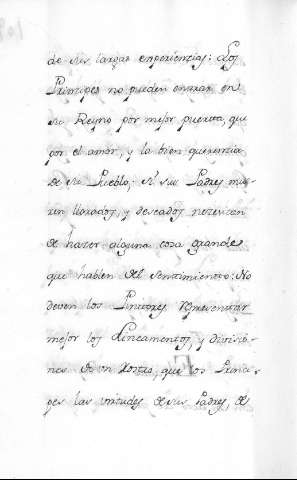 de sus largas experiencias: Los
Principes no pueden entrar en
su Reyno por mejor puerta, que
por el amor, y la bien querencia
de su Pueblo; si sus Padres mue-
ren llorados, y deseados necesitan
de hazer alguna cosa grande
que hablen del sentimiento: No
deven los Pintores representar
mejor los Lineamentos, y divisio-
nes de un Rostro, que los Princi-
pes las virtudes de sus Padres, de